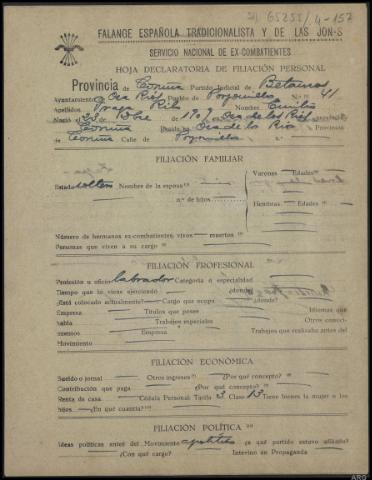 65255/4-157
FALANGE ESPAÑOLA TRADICIONALISTA Y DE LAS JON-S
SERVICIO NACIONAL DE EX-COMBATIENTES
HOJA DECLARATORIA DE FILIACIÓN PERSONAL
Provincia de Coruña Partido Judicial de Betanzos
Ayuntamiento Oza Rios Pueblo de N.º 41
Apellidos Nombre Emilio
Nació el 23 1907 Oza de los Rios
Coruña Reside en Oza de los Rios Provincia
de Coruña Calle de
FILIACIÓN FAMILIAR
Varones Edades
Estado soltero Nombre de la esposa
n.º de hijos
Hembras Edades
Número de hermanos ex-combatientes, vivos muertos
Personas que viven a su cargo
FILIACIÓN PROFESIONAL
Profesión u oficio labrador Categoría o especialidad
Tiempo que lo viene ejerciendo ¿donde
¿Está colocado actualmente? Cargo que ocupa ¿donde? Idiomas
Empresa Títulos que posee Otros conoci-
habla Trabajos especiales
mientos Empresa Trabajos que realizaba antes del
Movimiento
FILIACIÓN ECONÓMICA
Sueldo o jornal Otros ingresos ¿Por qué concepto?
Contribución que paga ¿Por qué concepto?
Renta de casa Cédula Personal Tarifa 3 Clase 13 Tiene bienes la mujer o los
hijos ¿En qué cuantía?
FILIACIÓN POLÍTICA
Ideas políticas antes del Movimiento apolítico ¿a qué partido estuvo afiliado?
¿Con qué cargo? Intervino en Propaganda